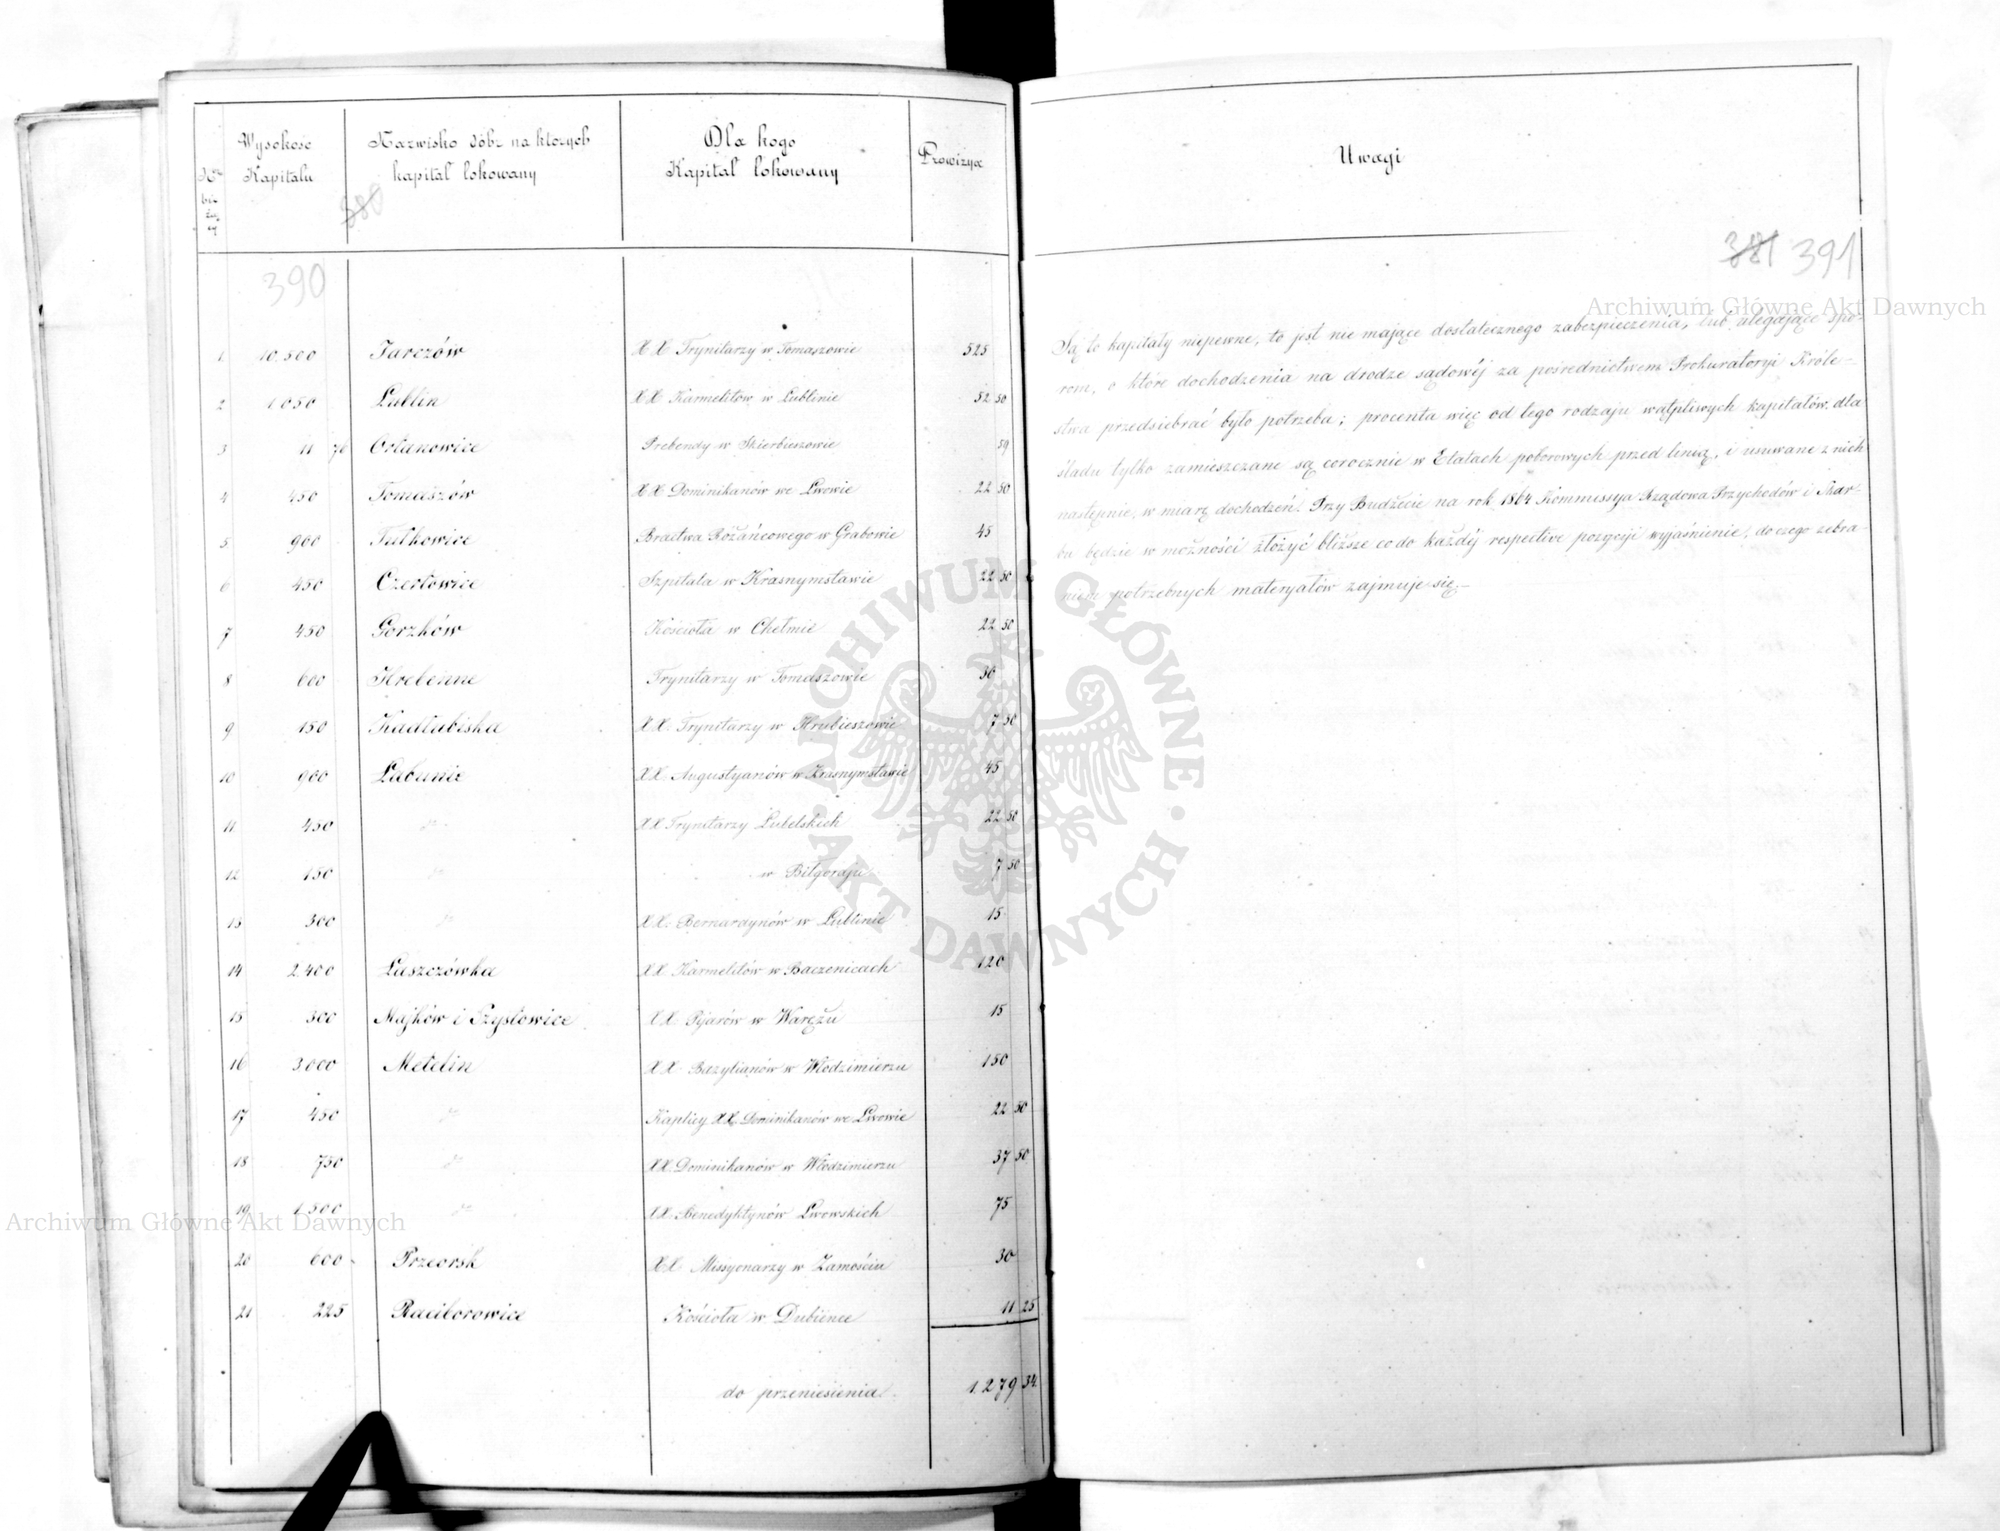 Wysokość Kapitału
Nazwisko dóbr na których kapitał lokowany
Dla kogo Kapitał lokowany
Prowizya
Uwagi
380
390
381 391
Archiwum Główne Akt Dawnych
1 10,500 Jarczów XX Trynitarzy w Tomaszowie 525
2 1050 Lublin XX Karmelitów w Lublinie 52 50
3 11 76 Orłanowice Prebendy w Skierbieszowie 59
4 450 Tomaszów XX Dominikanów we Lwowie 22 50
5 900 Tulkowice Bractwa Różańcowego w Grabowie 45
6 450 Czertowice Szpitala w Krasnymstawie 22 50
7 450 Gorzków Kościoła w Chełmie 22 50
8 600 Hrebenne Trynitarzy w Tomaszowie 30
9 150 Kadłubiska XX. Trynitarzy w Hrubieszowie 7 50
10 900 Łabunie XX. Augustyanów w Krasnymstawie 45
11 450 do XX Trynitarzy Lubelskich 22 50
12 150 do w Biłgoraju 7 50
13 300 do XX. Bernardynów w Lublinie 15
14 2,400 Łaszczówka XX Karmelitów w 120
15 300 Majków i XX Pijarów w Warężu 15
16 3000 Metelin XX Bazylianów w Włodzimierzu 150
17 450 do Kaplicy XX. Dominikanów we Lwowie 22 50
18 750 do XX. Dominikanów w Włodzimierzu 37 50
19 1,500 do XX. Benedyktynów Lwowskich 75
20 600 Przeorsk XX Missyonarzy w Zamościu 30
21 225 Raciborowice Kościoła w Dubience 11 25
do przeniesienia 1,279 34.
Są to kapitały niepewne, to jest nie mające dostatecznego zabezpieczenia, lub ulegające spo-
rom, o które dochodzenia na drodze sądowéj za pośrednictwem Prokuratoryi Króle-
stwa przedsiebrać było potrzeba; procenta więc od tego rodzaju wątpliwych kapitałów, dla
śladu tylko zamieszczane są corocznie w Etatach poborowych przed linią, i usuwane z nich
następnie, w miarę dochodzeń. Przy Budżecie na rok 1864 Kommissya Rządowa Przychodów i Skar-
bu będzie w możności złożyć bliższe co do każdéj respective pozycyi wyjaśnienie, do czego zebra-
niem potrzebnych materyałów zajmuje się.—
ARCHIWUM GŁÓWNE · AKT DAWNYCH ·
Archiwum Główne Akt Dawnych